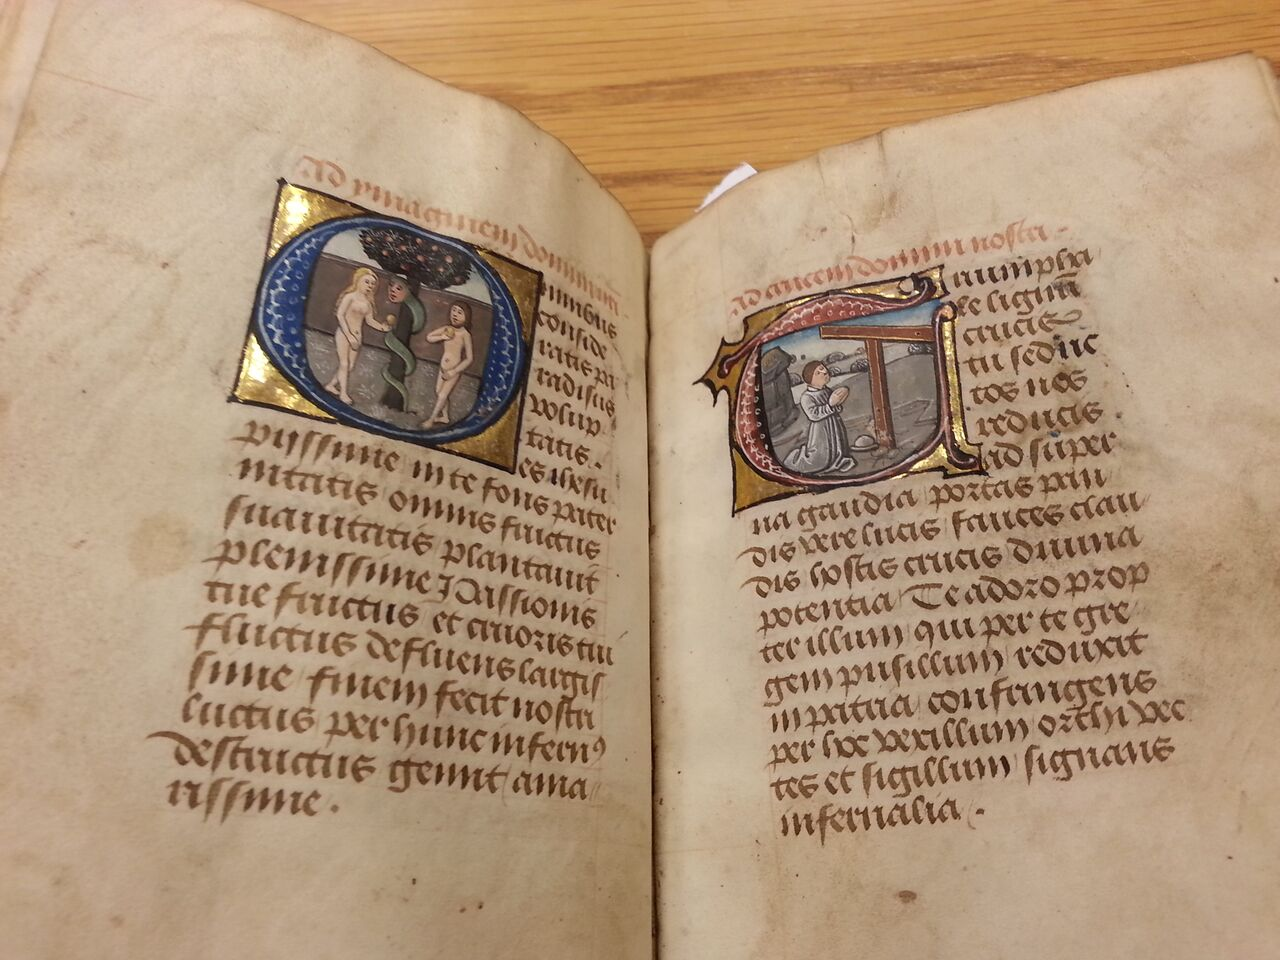 Ad ymaginem domini
Omnibus
conside
ratis pa
radisus
volup
tatis.
es ihesu
piissime in te fons pater
nitatis omnis fructus
suavitatis plantavit
plenissime Passionis
tue fructus et cruoris tui
fluctus defluens largis
sime finem fecit nostri
luctus per hunc infernꝰ
destructus gemit ama
rissime.
Ad crucem domini nostri.
Triumpha
le lignū
crucis
tu seduc
tos nos
reducis.
ad super
na gaudia portas pan
dis vere lucis fauces clau
dis hostis crucis divina
potentia Te adoro prop
ter illum qui per te gre
gem pusillum reduxit
in patria confringens
per hoc vexillum orthi vec
tes et sigillum signans
infernalia.